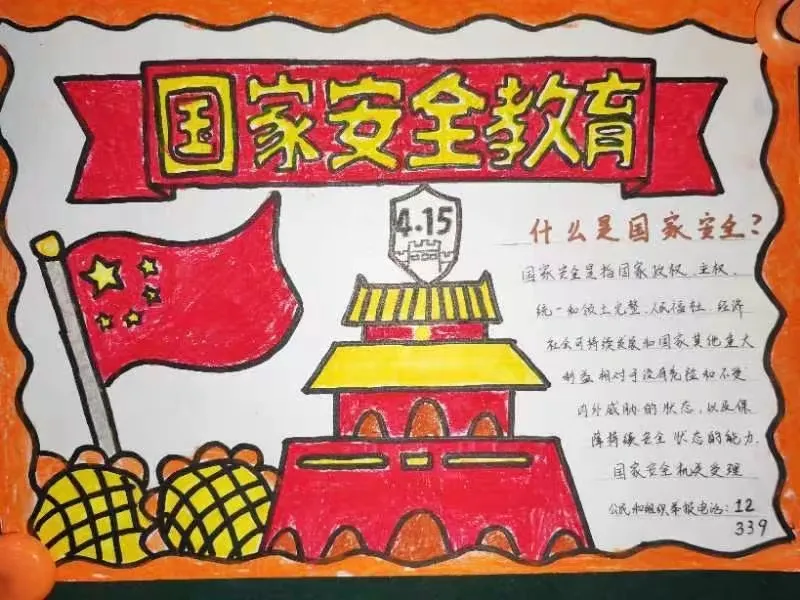 国家安全教育
4.15
什么是国家安全?
国家安全是指国家政权、主权、
统一和领土完整、人民福祉、经济
社会可持续发展和国家其他重大
利益相对于没有危险和不受
内外威胁的状态,以及保
障持续安全状态的能力.
国家安全机关受理
公民和组织举报电话:12
339